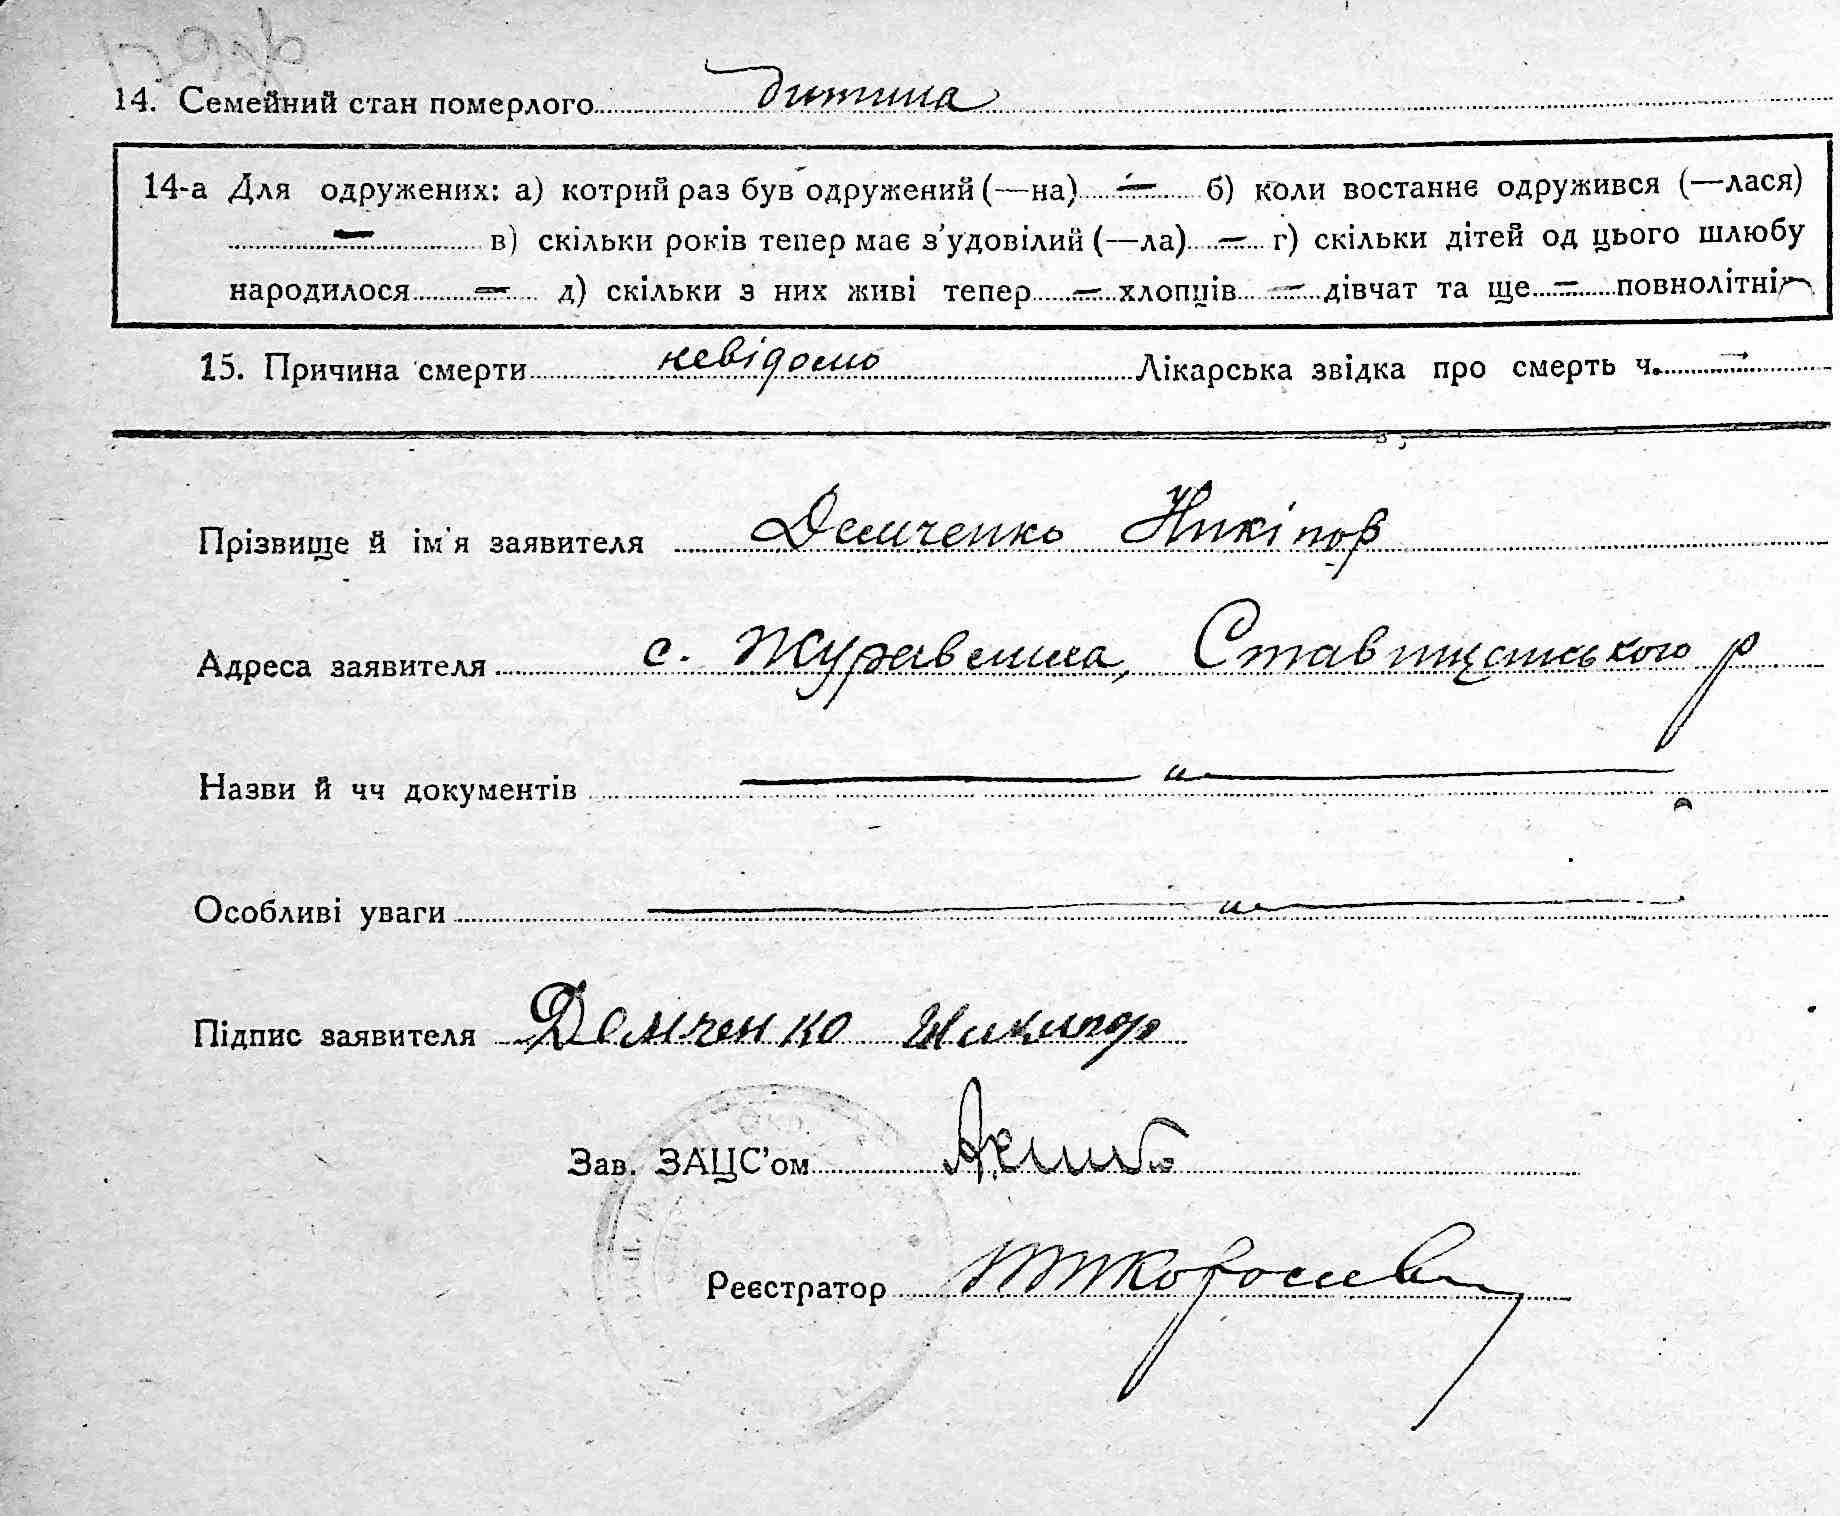 14. Семейний стан померлого дитина
14-а Для одружених: а) котрий раз був одружений (—на) — б) коли востаннє одружився (—лася)
— в) скільки років тепер має з'удовілий (—ла) — г) скільки дітей од цього шлюбу
народилося — д) скільки з них живі тепер — хлопців — дівчат та ще — повнолітніх
15. Причина смерти невідомо Лікарська звідка про смерть ч. —
Прізвище й ім'я заявителя Демченко Никіпор
Адреса заявителя с. Журавлиха, Ставищанського р
Назви й чч документів — " —
Особливі уваги — " —
Підпис заявителя Демченко Никипор
Зав. ЗАЦС'ом
Реєстратор